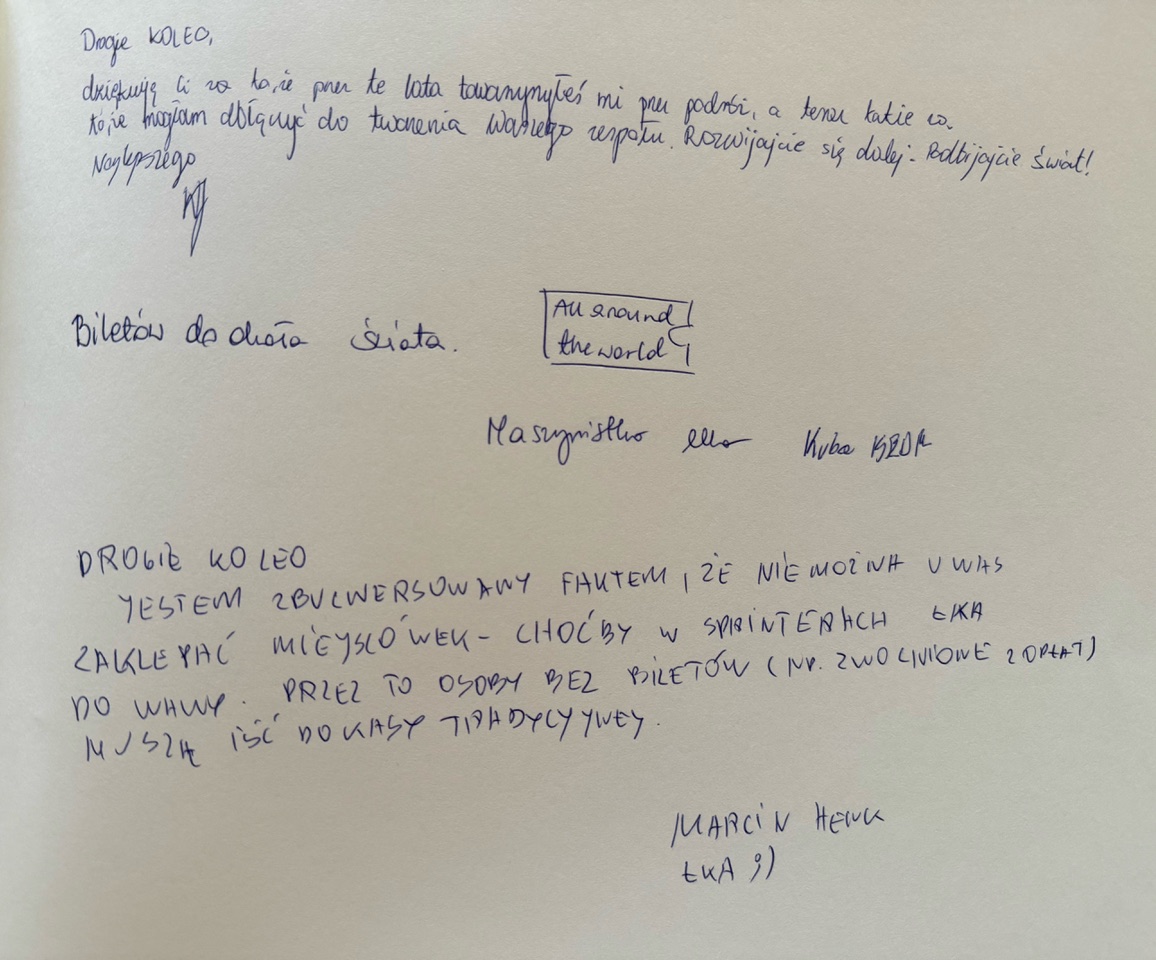 Drogie KOLEO,
dziękuję Ci za to, że przez te lata towarzyszyłeś mi przez podróż, a teraz także za
to, że mogłam dołączyć do tworzenia Waszego zespołu. Rozwijajcie się dalej. Podbijajcie świat!
Najlepszego
Biletów do okoła świata.
All around
the world
Maszynistka Kuba
DROGIE KOLEO
JESTEM ZBULWERSOWANY FAKTEM, ŻE NIE MOŻNA U WAS
ZAKLEPAĆ MIEJSCÓWEK - CHOĆBY W SPRINTERACH ŁKA
DO WAWY. PRZEZ TO OSOBY BEZ BILETÓW (NP. ZWOLNIONE Z OPŁAT)
MUSZĄ IŚĆ DO KASY TRADYCYJNEJ.
MARCIN
ŁKA ;)